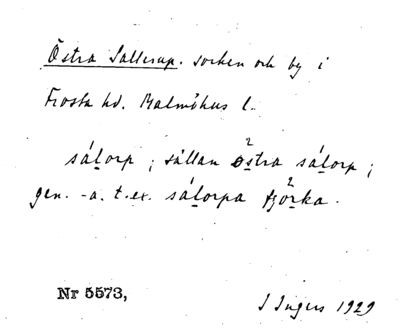 Östra Sallerup. socken och by i
Frosta hd. Malmöhus l.
sáḻorp ; sällan ö̱²stra sáḻorp ;
gen. -a. t.ex. sáḻorpa fjö²ṟka.
Nr 5573,
I Ingers 1929